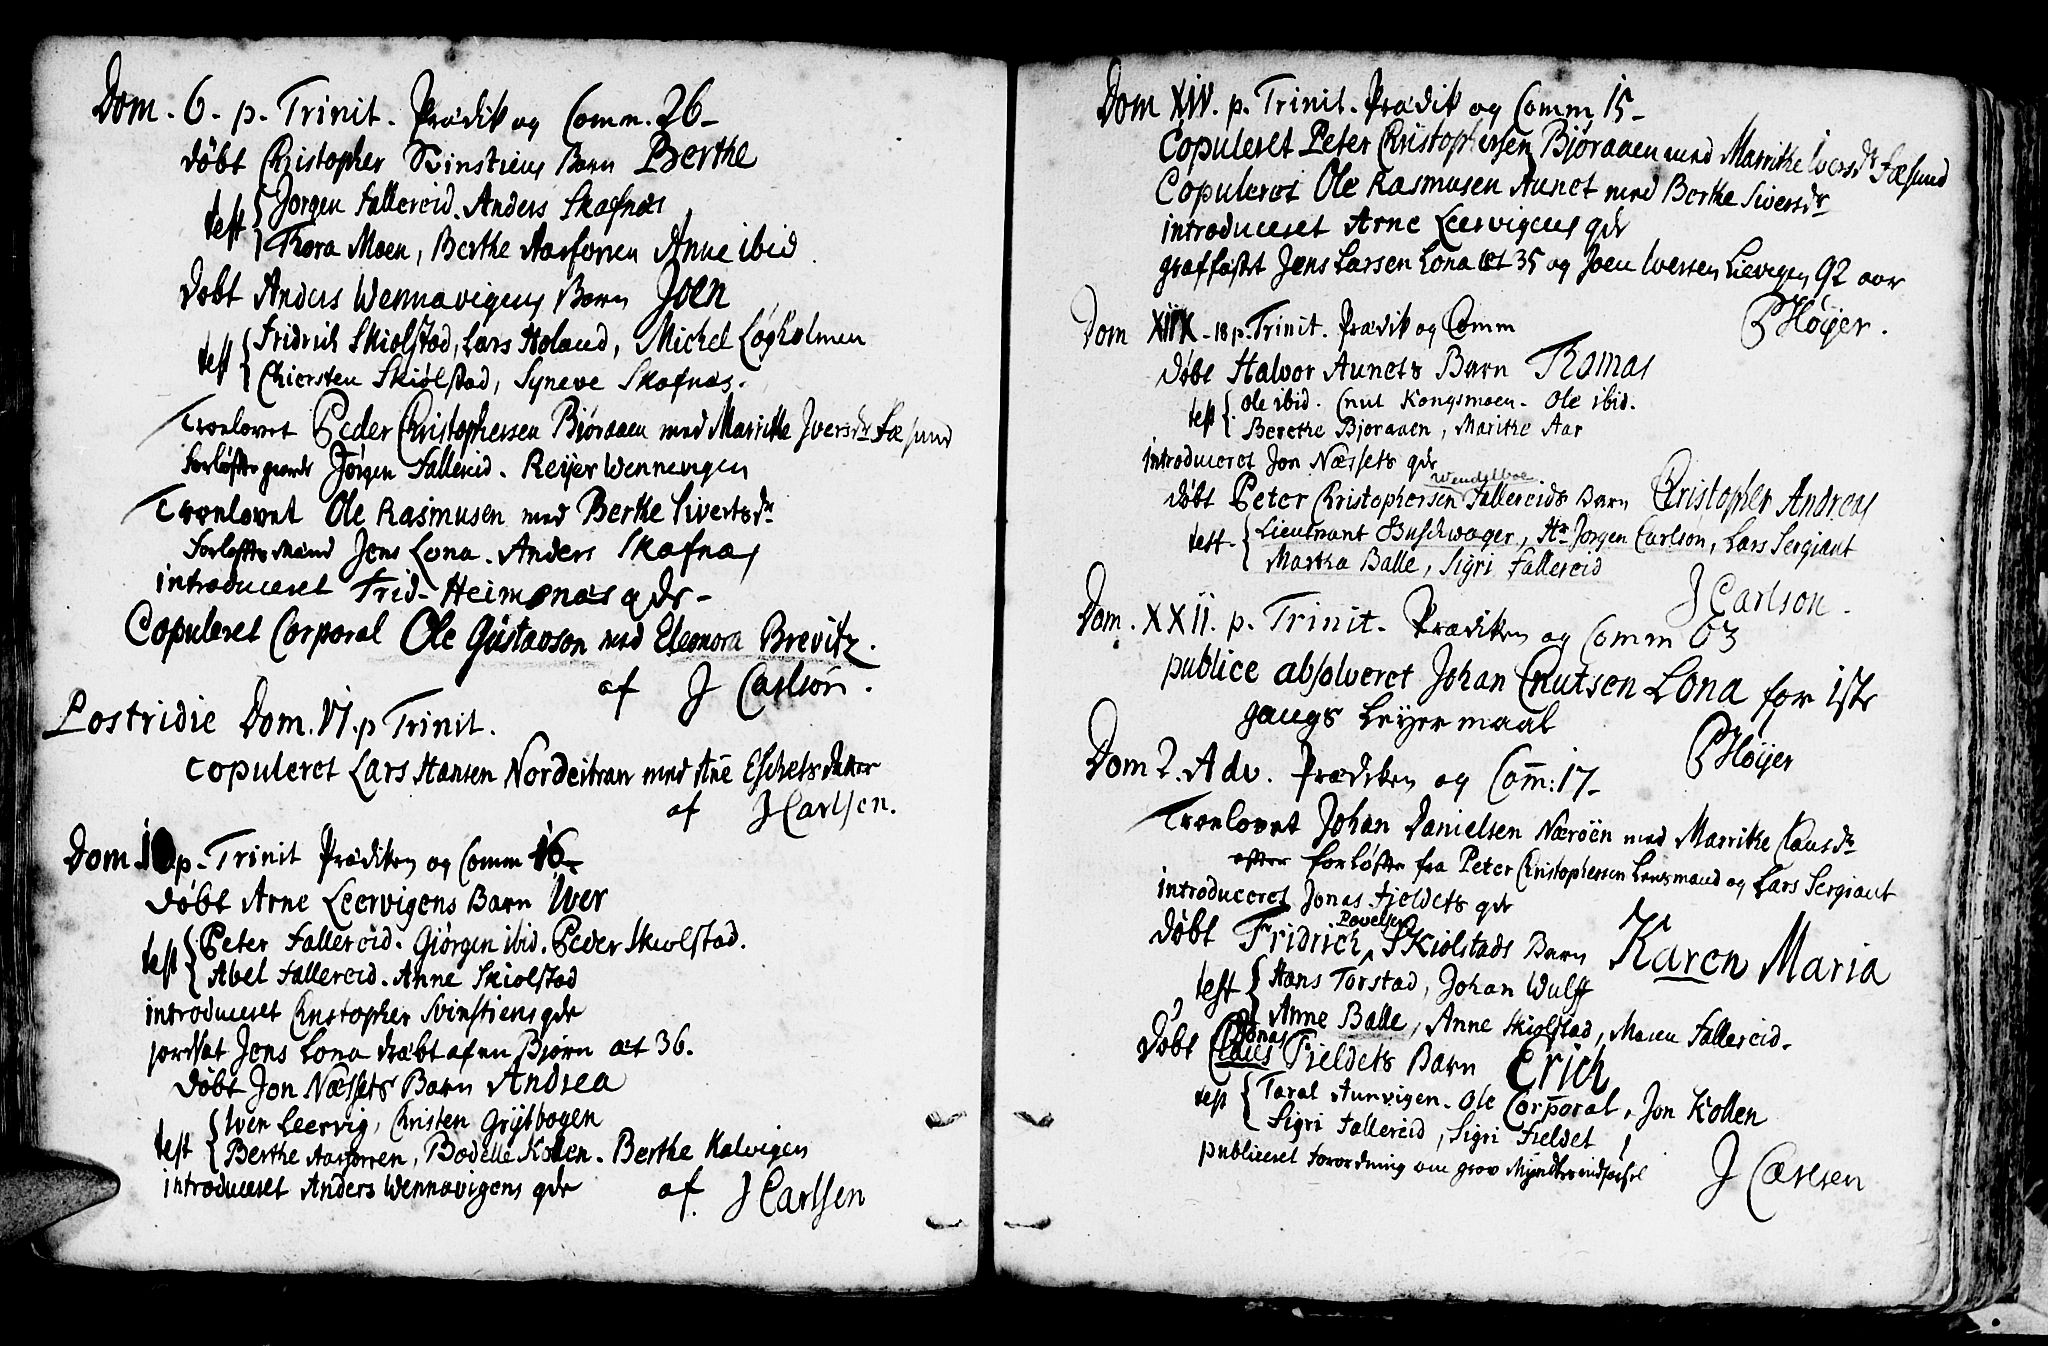 Dom. 6. p. Trinit. Prædik og Comm. 26-
døbt Christopher Svinstiens Barn Berthe
test { Jørgen Fallereid. Anders Skafnæs
Thora Moen, Berthe Aarforren Anne ibid
Døbt Anders Wennavigens Barn Joen
test { Fridrich Skiølstad, Lars Holand, Michel Løgholmen
Chiersten Skiølstad, Syneve Skafnæs.
Troelovet Peder Christophersen Bjøraaen med Marrithe Iversdr Fæsund
Jørgen Fallereid. Reijer Wennevigen
Troelovet Ole Rasmusen med Berthe Sivertsdr
Forløfts Mænd Jens Lona. Anders Skafnas
introduceret Frid- Heimonæs qdr-
Copuleret Corporal Ole Gustavson med Eleonora Brevitz.
af J Carlson.
Postridie Dom. VI. p Trinit.
Copuleret Lars Hansen Nordeitran med Añe Eschels datter
af J Carlsen.
Dom p. Trinit Prædiken og Comm 16-
Døbt Arne Leervigens Barn Iver
test { Peter Fallereid. Giørgen ibid. Peder Skiolstad.
Abel Fallereid. Anne Skiolstad
introduceret Christopher Svinstiens qdr
jordsat Jens Lona dræbt af en Bjørn æt 36.
Døbt Jon Næssets Barn Andrea
test { Iver Leervig, Christen Grytbogen
Berthe Aarforren, Bodelle Kollen. Berthe Kalvigen
introduceret Anders Wennavigens qdr af. J Carlsen
Dom XIV. p. Trinit. Prædik og Comm 15-
Copuleret Peter Christophersen Bjøraaen med Marrithe Iversdr Fæsund
Copuleret Ole Rasmusen Aunet med Berthe Siversdr
introduceret Arne Leervigens qdr
graffæstet Jens Larsen Lona æt 35 og Joen Iversen Lievigen 92 aar
P Høyer.
Dom 18 p. Trinit. Prædik og Comm
døbt Halvor Aunets Barn Thomas
test { Ole ibid. Cnut Kongsmoen. Ole ibid.
Berethe Bjøraaen, Marithe Aar
introduceret Jon Næssets qdr
Wendelboe
døbt Peter Christophersen Fallereids Barn Christopher Andreas
test- { Lieutnant Buschwager, Hr Jørgen Carlson, Lars Sergiant
Martha Balle, Sigri Fallereid
J Carlson.
Dom. XXII. p. Trinit. Prædiken og Comm 63
publice absolveret Johan Cnutsen Lona for 1ste
gangs Leyermaal
P Høyer
Dom 2. Adv. Prædiken og Com̃: 17-
Troelovet Johan Danielsen Nærøen med Marrithe Clausdr
efter forløfte fra Peter Christophersen Lensmand og Lars Sergiant
introduceret Jonas Fieldets qdr
Povelsen
døbt Fridrich Skiolstads Barn Karen Maria
test { Hans Torstad, Johan Wulff
Anne Balle, Anne Skiolstad, Maren Fallereid.
Jonas
Døbt Claus Fieldets Barn Erich
test { Taral Aunvigen. Ole Corporal, Jon Kollen
Sigri Fallereid, Sigri Fieldet
publiceret Forordning om grov Myndts indførsel
J Carlsen